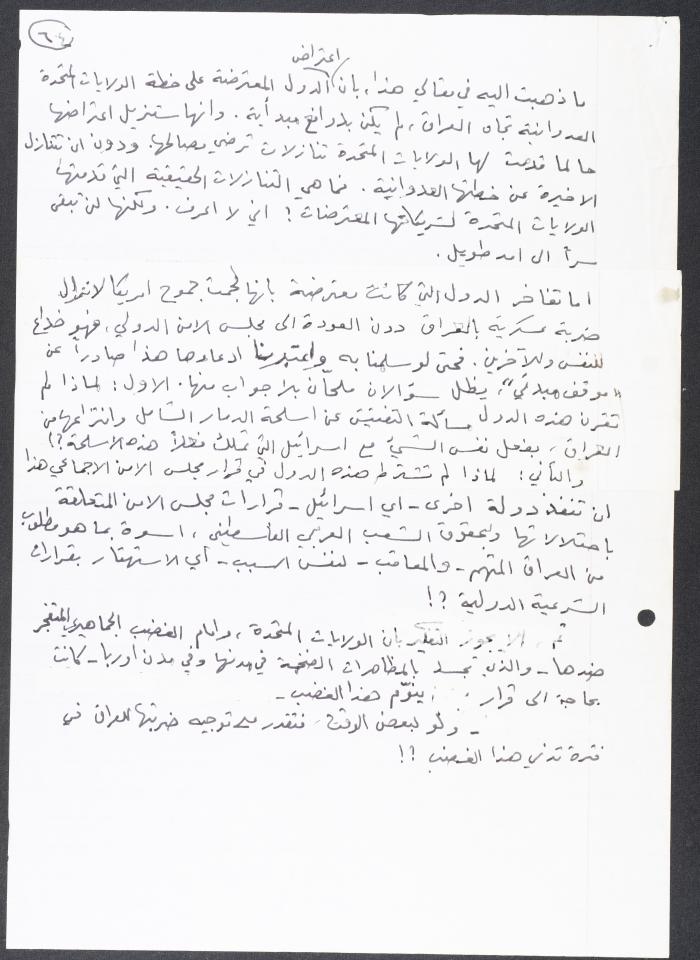 ٦٤
اعتراض
ما ذهبت اليه في مقالي هذا، بان الدول المعترضة على خطة الولايات المتحدة
العدوانية تجاه العراق، لم يكن بدوافع مبدأية. وانها ستزيل اعتراضها
حالما قدمت لها الولايات المتحدة تنازلات ترضي مصالحها. ودون ان تتنازل
الاخيرة عن خطتها العدوانية. فما هي التنازلات الحقيقية التي قدمتها
الولايات المتحدة لشريكاتها المعترضات؟ اني لا اعرف. ولكنها لن تبقى
سرأ الى امد طويل.
اما تفاخر الدول التي كانت معترضة بانها لجمت جموح امريكا لانزال
ضربة عسكرية بالعراق دون العودة الى مجلس الامن الدولي، فهو خداع
للنفس وللآخرين. فحتى لو سلمنا به واعتبرنا ادعاءها هذا صادرأ عن
"موقف مبدئي"، يظل سؤالان ملحّان بلا جواب منها. الاول: لماذا لم
تقرن هذه الدول مسألة التفتيش عن اسلحة الدمار الشامل وانتزاعها من
العراق، بفعل نفس الشيء مع اسرائيل التي تملك فعلأ هذه الاسلحة؟!
والثاني: لماذا لم تشترط هذه الدول في قرار مجلس الامن الاجماعي هذا
ان تنفذ دولة اخرى - اي اسرائيل - قرارات مجلس الامن المتعلقة
باحتلالاتها وبحقوق الشعب العربي الفلسطيني، اسوة بما هو مطلوب
من العراق المتهم - والمعاقب - لنفس السبب - أي الاستهتار بقرارات
الشرعية الدولية؟!
ثم، الا يجوز التفكير بان الولايات المتحدة، وامام الغضب الجماهيري المتفجر
ضدها - والذي تجسد بالمظاهرات الضخمة في مدنها وفي مدن اوربا - كانت
بحاجة الى قرار ينوّم هذا الغضب -
- ولو لبعض الوقت، فتقدر على توجيه ضربتها للعراق في
فترة تدني هذا الغضب؟!